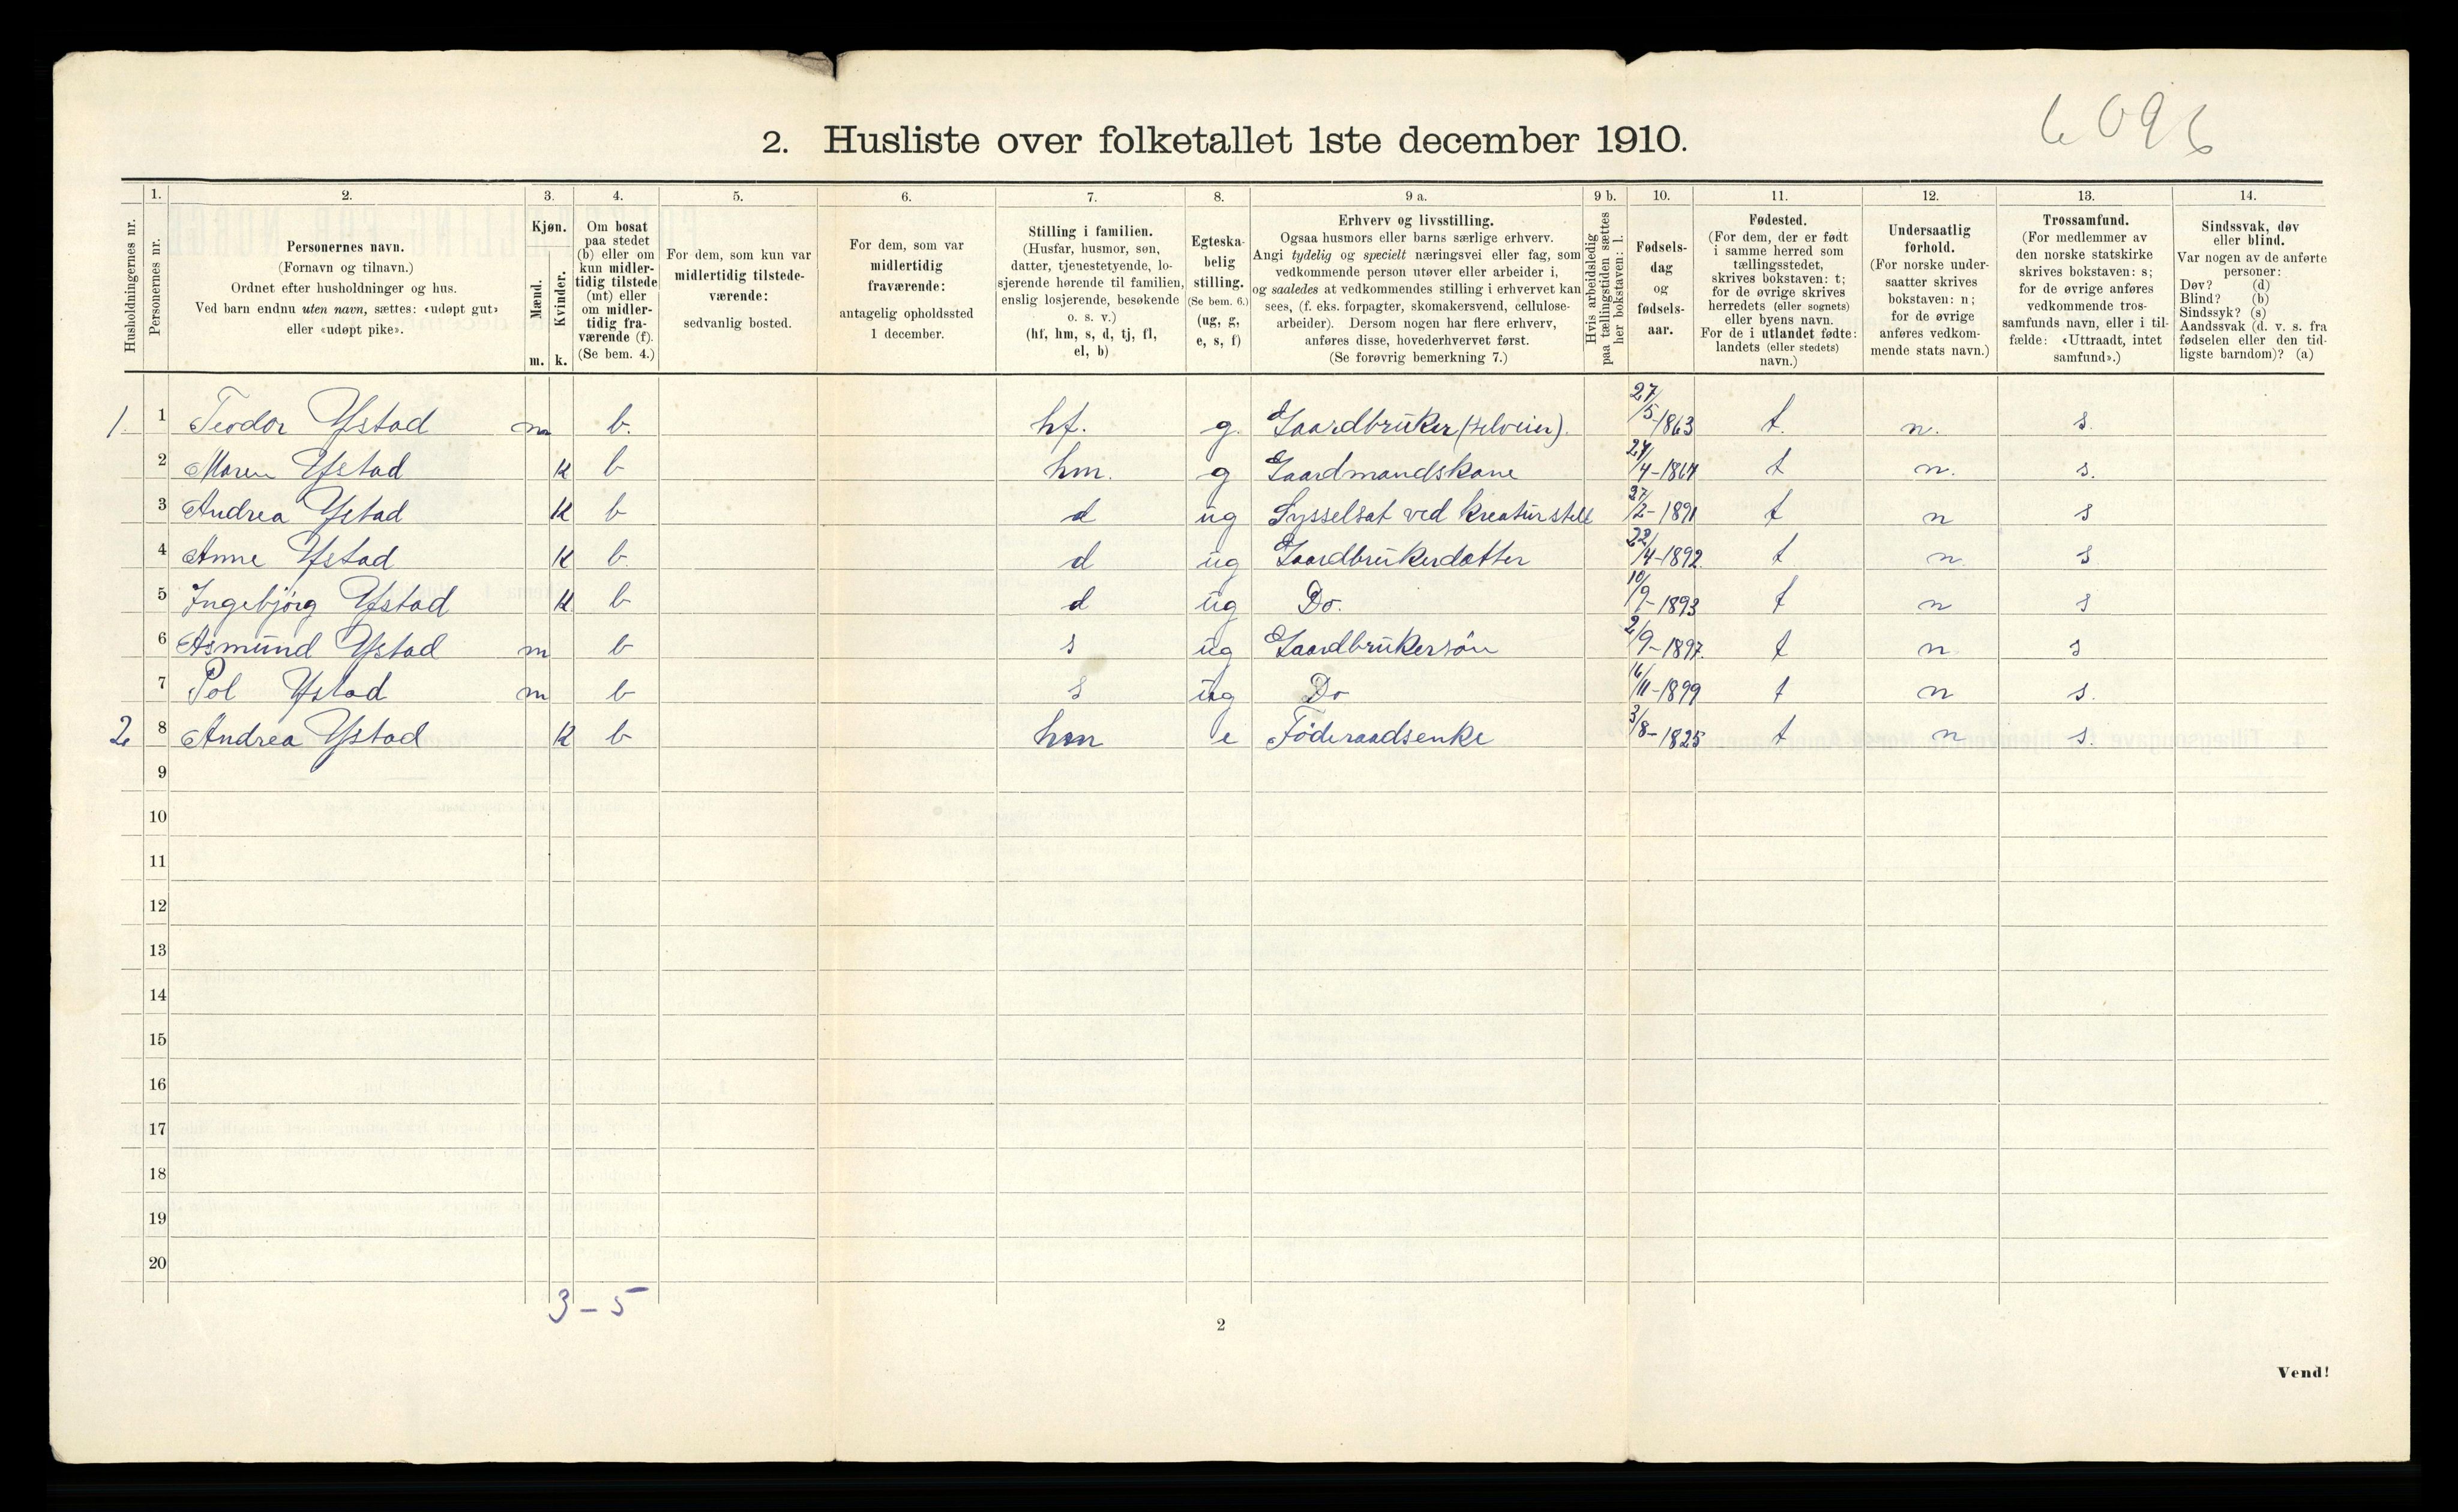 6096
2. Husliste over folketallet 1ste december 1910.
Husholdningernes nr.
1.
Personernes nr.
2.
Personernes navn.
(Fornavn og tilnavn.)
Ordnet efter husholdninger og hus.
Ved barn endnu uten navn, sættes: «udøpt gut»
eller «udøpt pike».
3.
Kjøn.
Mænd.
Kvinder.
m. k.
4.
Om bosat
paa stedet
(b) eller om
kun midler-
tidig tilstede
(mt) eller
om midler-
tidig fra-
værende (f).
(Se bem. 4.)
5.
For dem, som kun var
midlertidig tilstede-
værende:
sedvanlig bosted.
6.
For dem, som var
midlertidig
fraværende:
antagelig opholdssted
1 december.
7.
Stilling i familien.
(Husfar, husmor, søn,
datter, tjenestetyende, lo-
sjerende hørende til familien,
enslig losjerende, besøkende
o. s. v.)
(hf, hm, s, d, tj, fl,
el, b)
8.
Egteska-
belig
stilling.
(Se bem. 6.)
(ug, g,
e, s, f)
9 a.
Erhverv og livsstilling.
Ogsaa husmors eller barns særlige erhverv.
Angi tydelig og specielt næringsvei eller fag, som
vedkommende person utøver eller arbeider i,
og saaledes at vedkommendes stilling i erhvervet kan
sees, (f. eks. forpagter, skomakersvend, cellulose-
arbeider). Dersom nogen har flere erhverv,
anføres disse, hovederhvervet først.
(Se forøvrig bemerkning 7.)
9 b.
Hvis arbeidsledig
paa tællingstiden sættes
her bokstaven: l.
10.
Fødsels-
dag
og
fødsels-
aar.
11.
Fødested.
(For dem, der er født
i samme herred som
tællingsstedet,
skrives bokstaven: t;
for de øvrige skrives
herredets (eller sognets)
eller byens navn.
For de i utlandet fødte:
landets (eller stedets)
navn.)
12.
Undersaatlig
forhold.
(For norske under-
saatter skrives
bokstaven: n;
for de øvrige
anføres vedkom-
mende stats navn.)
13.
Trossamfund.
(For medlemmer av
den norske statskirke
skrives bokstaven: s;
for de øvrige anføres
vedkommende tros-
samfunds navn, eller i til-
fælde: «Uttraadt, intet
samfund».)
14.
Sindssvak, døv
eller blind.
Var nogen av de anførte
personer:
Døv? (d)
Blind? (b)
Sindssyk? (s)
Aandssvak (d. v. s. fra
fødselen eller den tid-
ligste barndom)? (a)
1. 1 Teodor Ystad m b. hf. g. Gaardbruker (selveier). 27/5-1863 t. n. s.
2 Maren Ystad k b hm. g Gaardmandskone 24/4-1864 t n. s.
3 Andrea Ystad k b d ug Sysselsat ved kreaturstell 27/2-1891 t n s
4 Anne Ystad k b. d ug Gaardbrukerdatter 22/4-1892 t n. s
5 Ingebjörg Ystad k b d ug Do. 10/9-1893 t n s
6 Asmund Ystad m b s ug Gaardbrukersön 2/9-1897. t n s
7 Pol Ystad m b s ug Do 16/11-1899 t n s.
2 8 Andrea Ystad k b hm e Föderaadsenke 3/8-1825 t n s.
9
10
11
12
13
14
15
16
17
18
19
20
3-5
2
Vend!